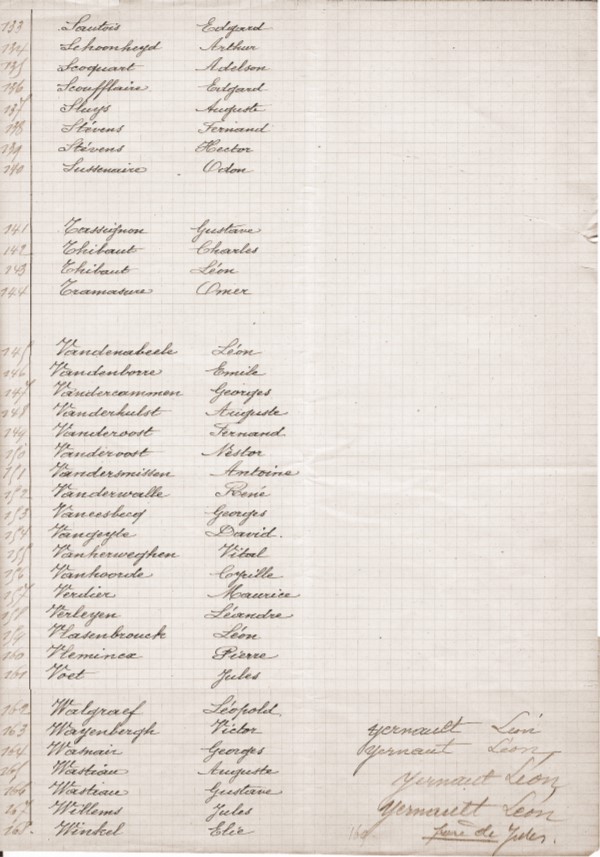 133 Sautois Edgard
134 Schoonheyd Arthur
135 Scoquart Adelson
136 Scoufflaire Edgard
137 Sluys Auguste
138 Stévens Fernand
139 Stévens Hector
140 Sussenaire Odon
141 Tassignon Gustave
142 Thibaut Charles
143 Thibaut Léon
144 Tramasure Omer
145 Vandenabeele Léon
146 Vandenborre Emile
147 Vandercammen Georges
148 Vanderhulst Auguste
149 Vanderoost Fernand
150 Vanderoost Nestor
151 Vandersmissen Antoine
152 Vanderwalle Réné
153 Vaneesbecq Georges
154 Vangeyte David.
155 Vanherweghen Vital
156 Vanhoorde Cyrille
157 Verdier Maurice
158 Verleyen Léandre
159 Vlasenbrouck Léon
160 Vleminex Pierre
161 Voet Jules
162 Walgraef Léopold
163 Wayenbergh Victor Yernault Léon
164 Wasnair Georges Yernaut Léon,
165 Wastiau Auguste Yernaut Léon,
166 Wastiau Gustave
167 Willems Jules Yernault Léon
168. Winkel Elie père de Jules.